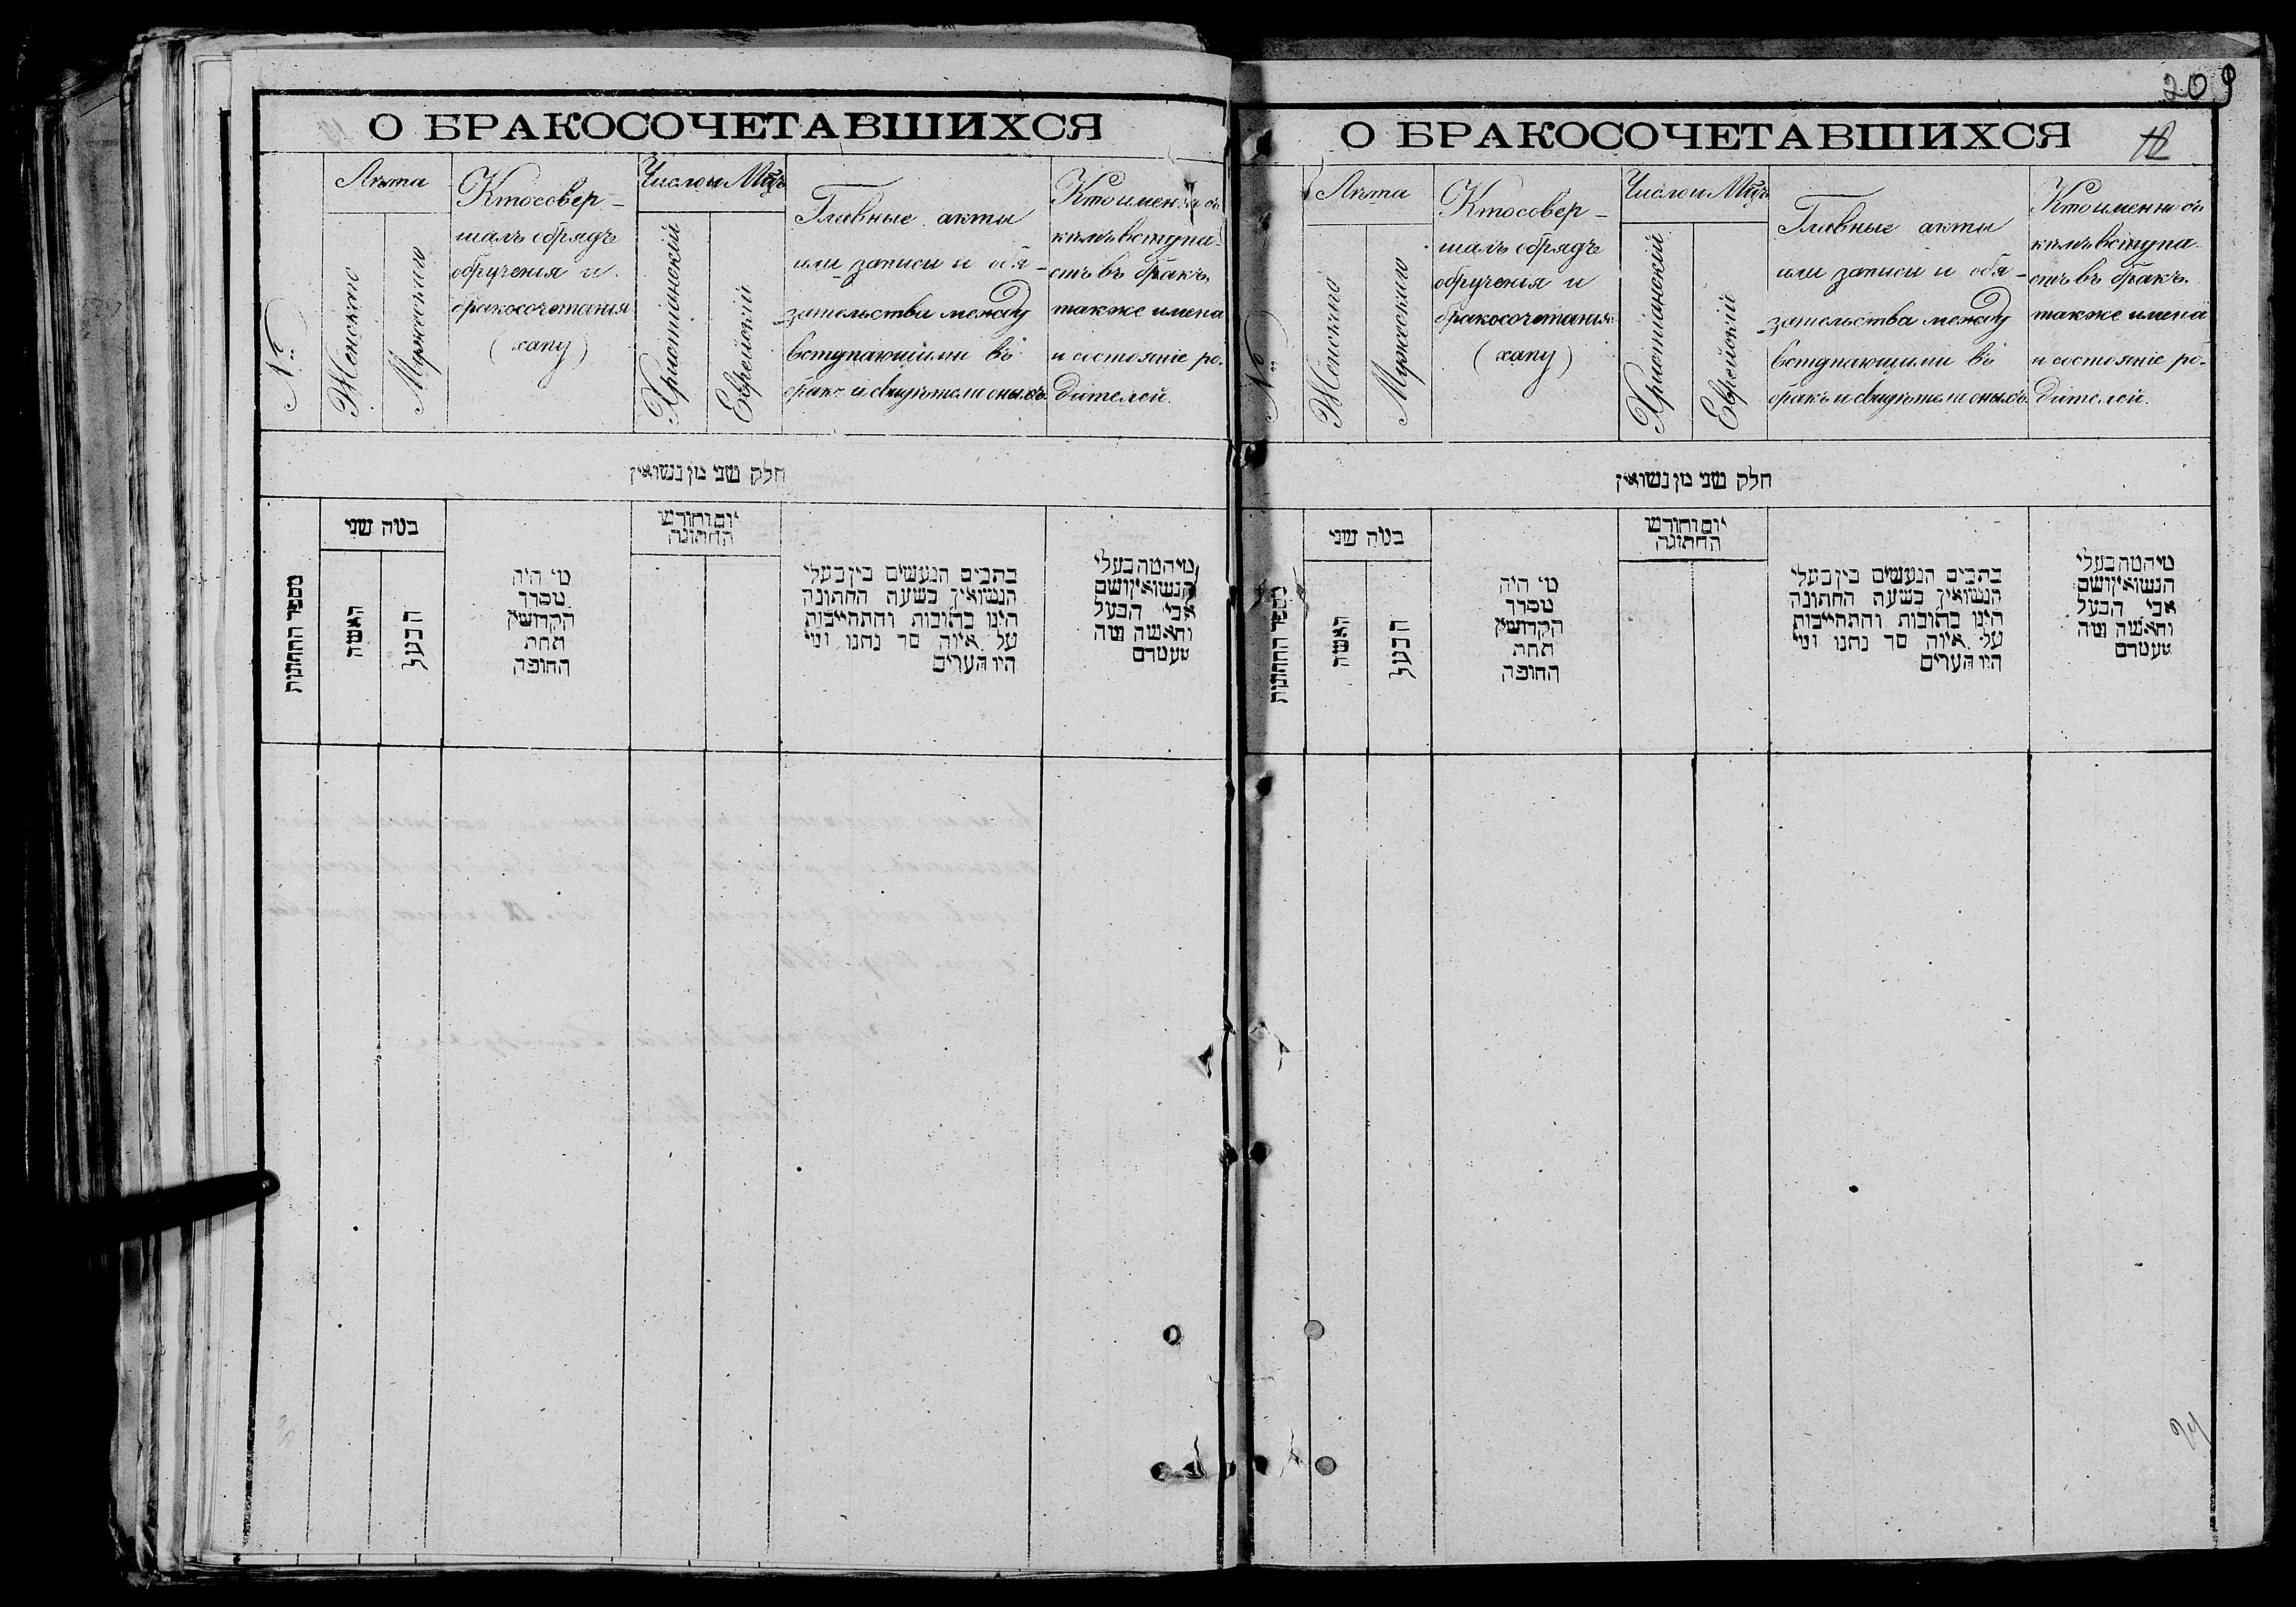 О БРАКОСОЧЕТАВШИХСЯ
№
Лѣта
Женского
Мужеского
Кто совер-
шалъ обрядъ
обрученія и
бракосочетанія
(хапу)
Число и Мцъ
Христіанскій
Еврейскій
Главные акты
или записи и обя-
зательства между
вступающими въ
бракъ и свидѣтели оныхъ.
Кто именно съ
кѣмъ вступа-
етъ въ бракъ,
также имена
и состояніе ро-
дителей.
חלק שני מן נשואין
מספר החתונות
במה שני
האשה
הבעל
מי היה
מסדר
הקדושין
תחת
החופה
יום וחודש
החתונה
כתבים הנעשים בין בעלי
הנשואין בשעת החתונה
היינו כתובות והתחייבות
על איזה סך נתנו ומי
היו העדים
מי המה בעלי
הנשואין ושם
אבי הבעל
והאשה ומה
מעמדם
209
О БРАКОСОЧЕТАВШИХСЯ
№
Лѣта
Женского
Мужеского
Кто совер-
шалъ обрядъ
обрученія и
бракосочетанія
(хапу)
Число и Мцъ
Христіанскій
Еврейскій
Главные акты
или записи и обя-
зательства между
вступающими въ
бракъ и свидѣтели оныхъ.
Кто именно съ
кѣмъ вступа-
етъ въ бракъ,
также имена
и состояніе ро-
дителей.
חלק שני מן נשואין
מספר החתונות
במה שני
האשה
הבעל
מי היה
מסדר
הקדושין
תחת
החופה
יום וחודש
החתונה
כתבים הנעשים בין בעלי
הנשואין בשעת החתונה
היינו כתובות והתחייבות
על איזה סך נתנו ומי
היו העדים
מי המה בעלי
הנשואין ושם
אבי הבעל
והאשה ומה
מעמדם